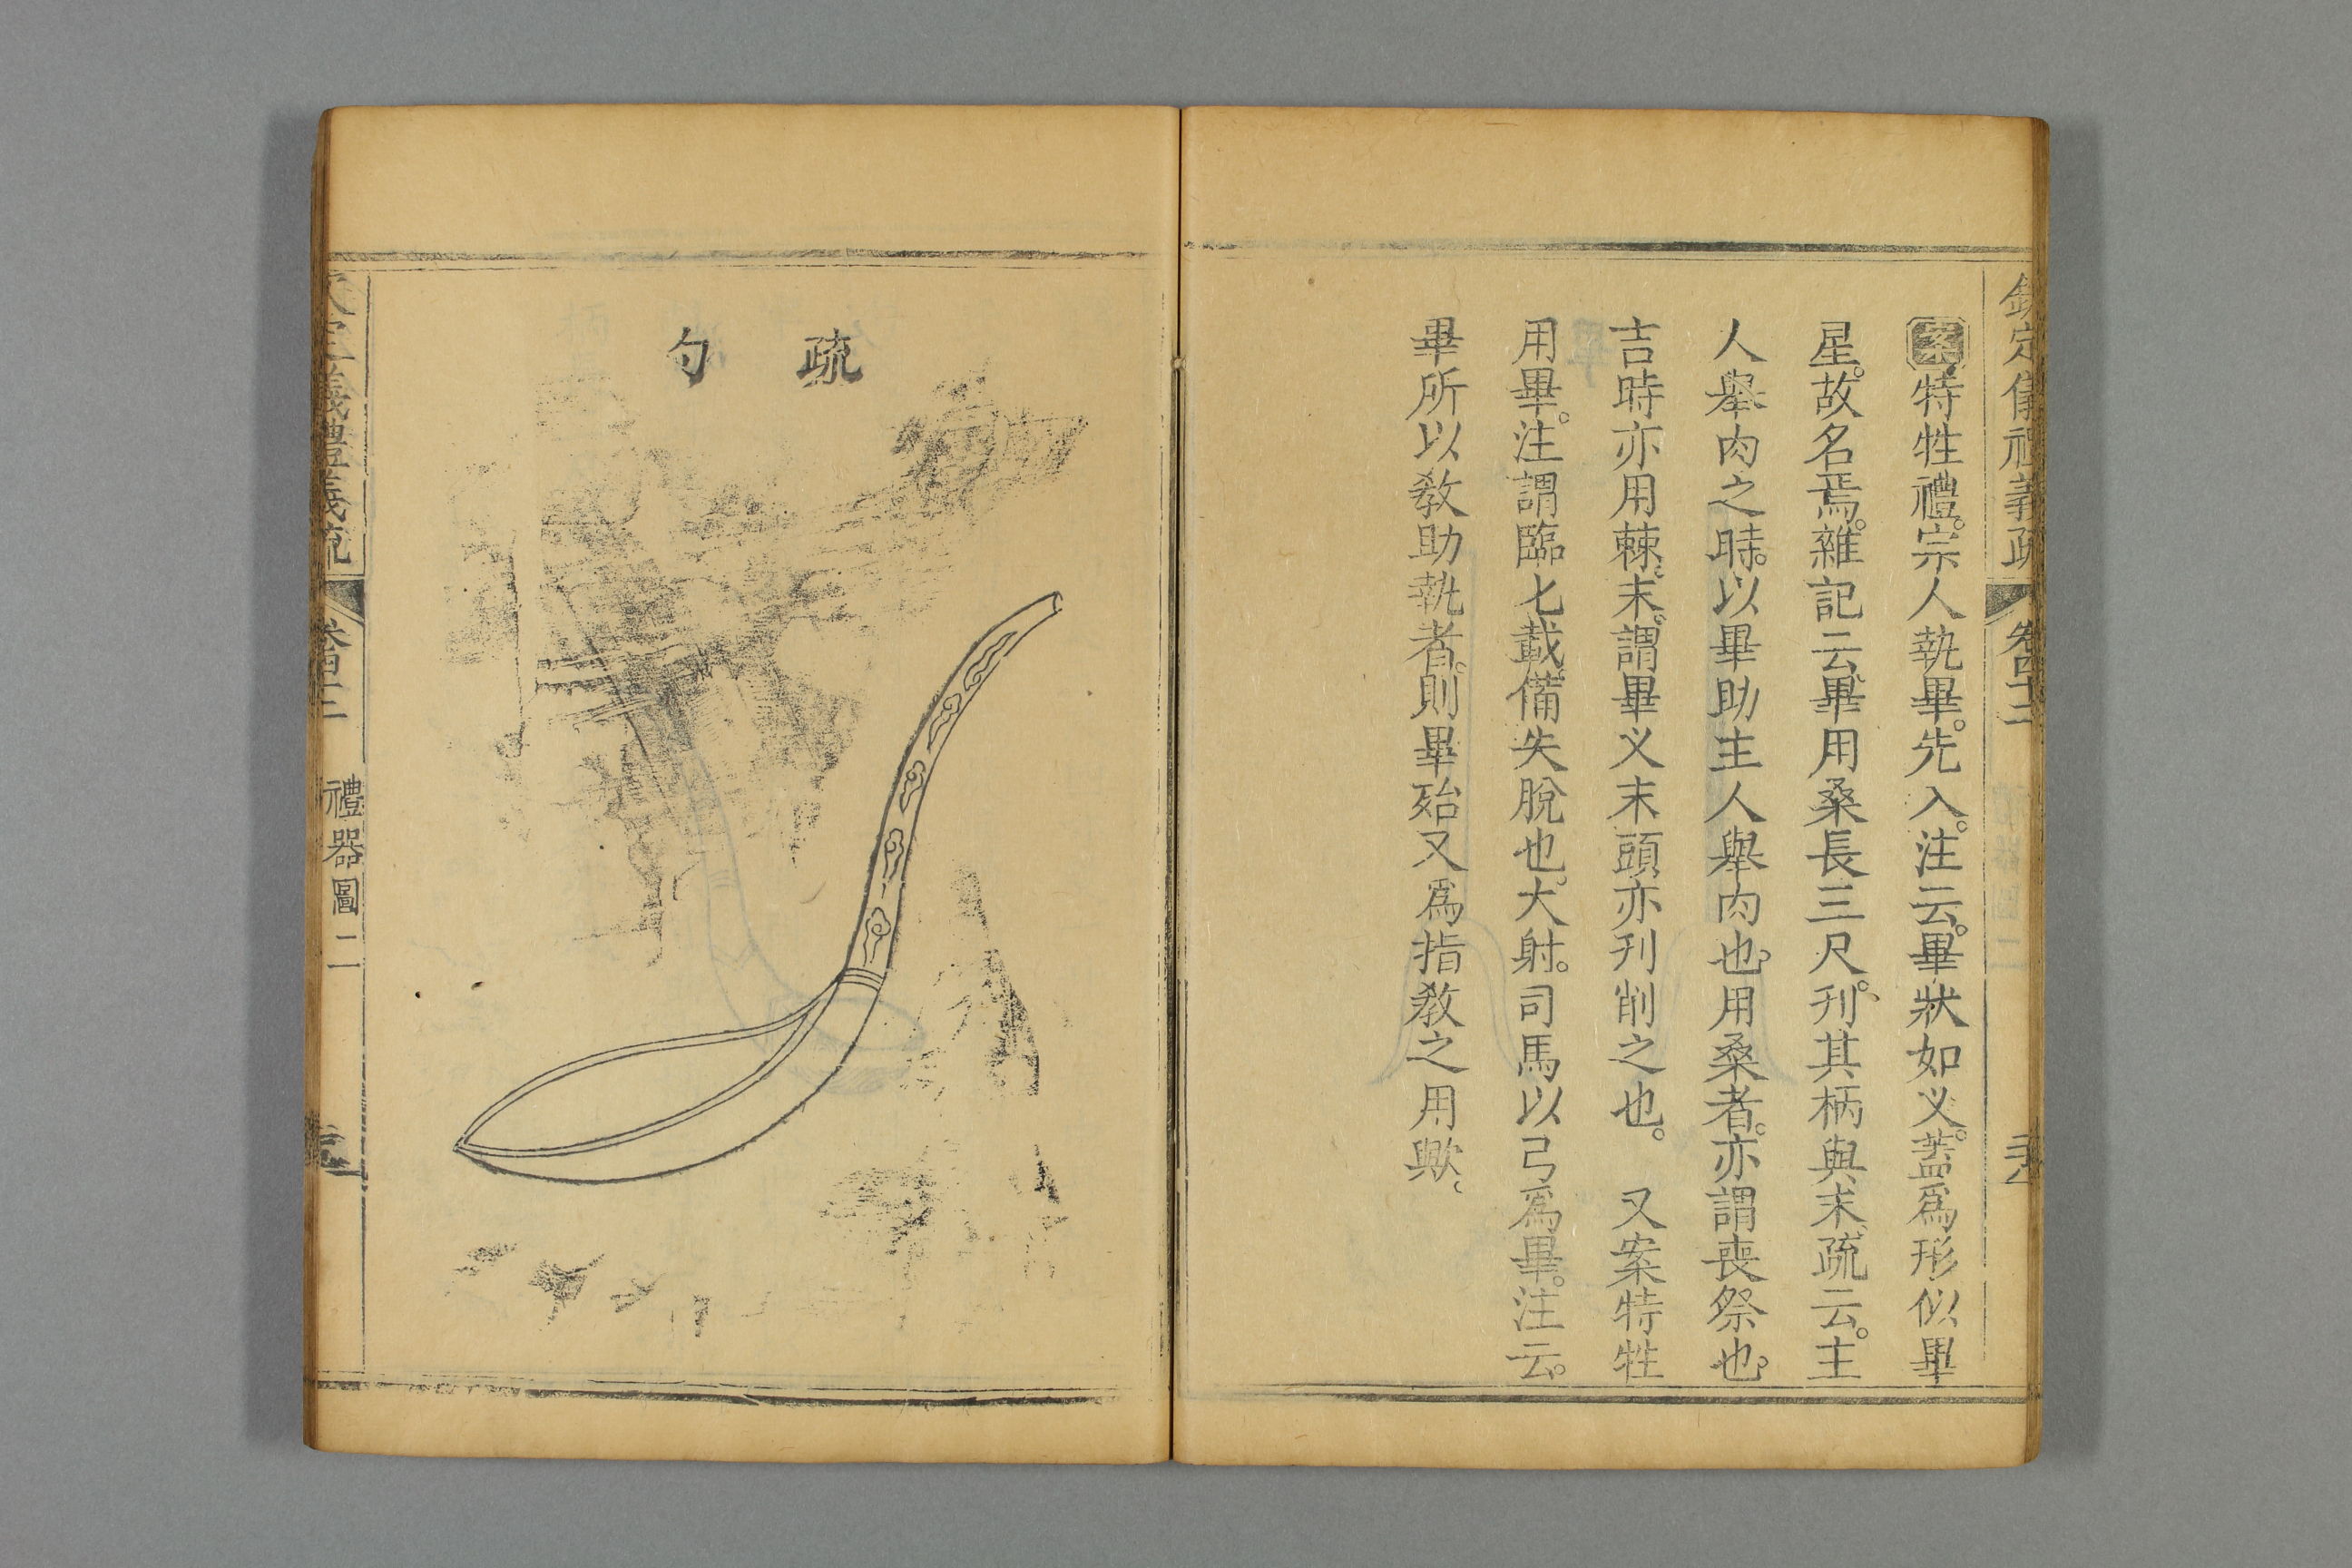 欽定儀禮義疏 卷四十二
案特牲禮。宗人執畢。先入。注云。畢狀如义。蓋爲形似畢
星。故名焉。雜記云。畢用桑長三尺。刋其柄與末。疏云。主
人舉肉之時。以畢助主人舉肉也。用桑者。亦謂喪祭也。
吉時亦用棘。末。謂畢义末頭亦刋削之也。 又案特牲
用畢。注謂臨匕載。備失脫也。大射。司馬以弓爲畢。注云。
畢所以敎助執者。則畢殆又爲指敎之用歟。
疏勺
禮器圖二